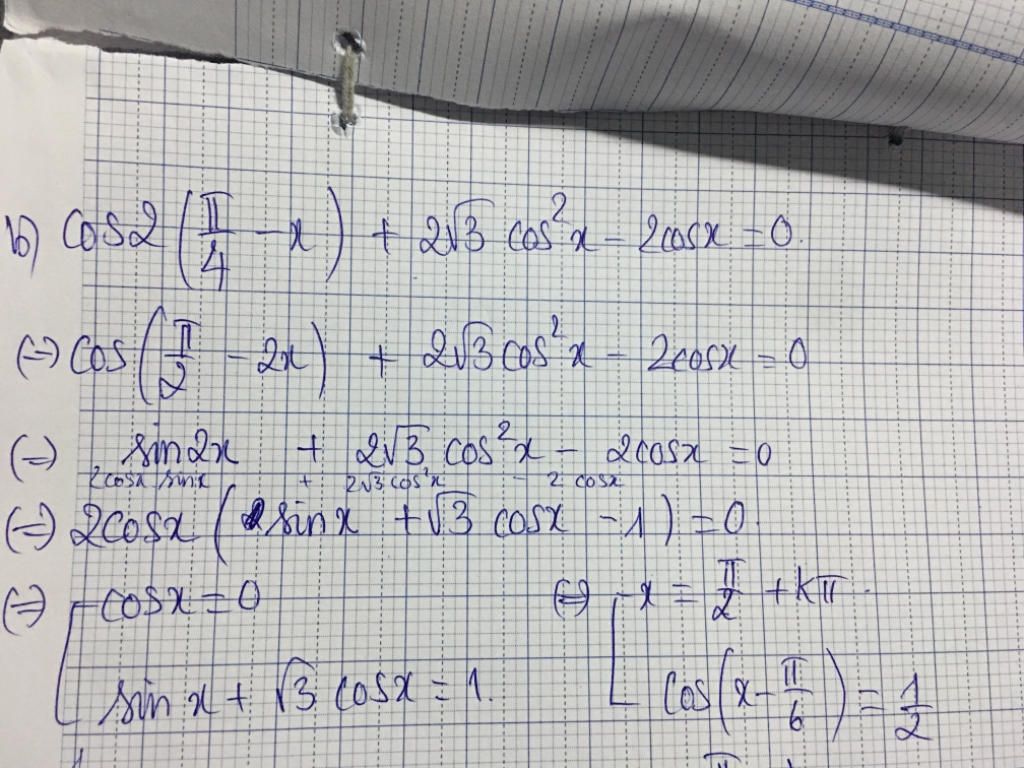 b) cos2(π/4 - x) + 2√3 cos²x - 2cosx = 0.
(=) cos(π/2 - 2x) + 2√3 cos²x - 2cosx = 0
(=) sin2x + 2√3 cos²x - 2cosx = 0
2cosx sinx + 2√3 cos²x - 2 cosx
(=) 2cosx (sinx + √3 cosx - 1) = 0.
(=) [ cosx = 0 (=) [ x = π/2 + kπ.
sinx + √3 cosx = 1. cos(x - π/6) = 1/2